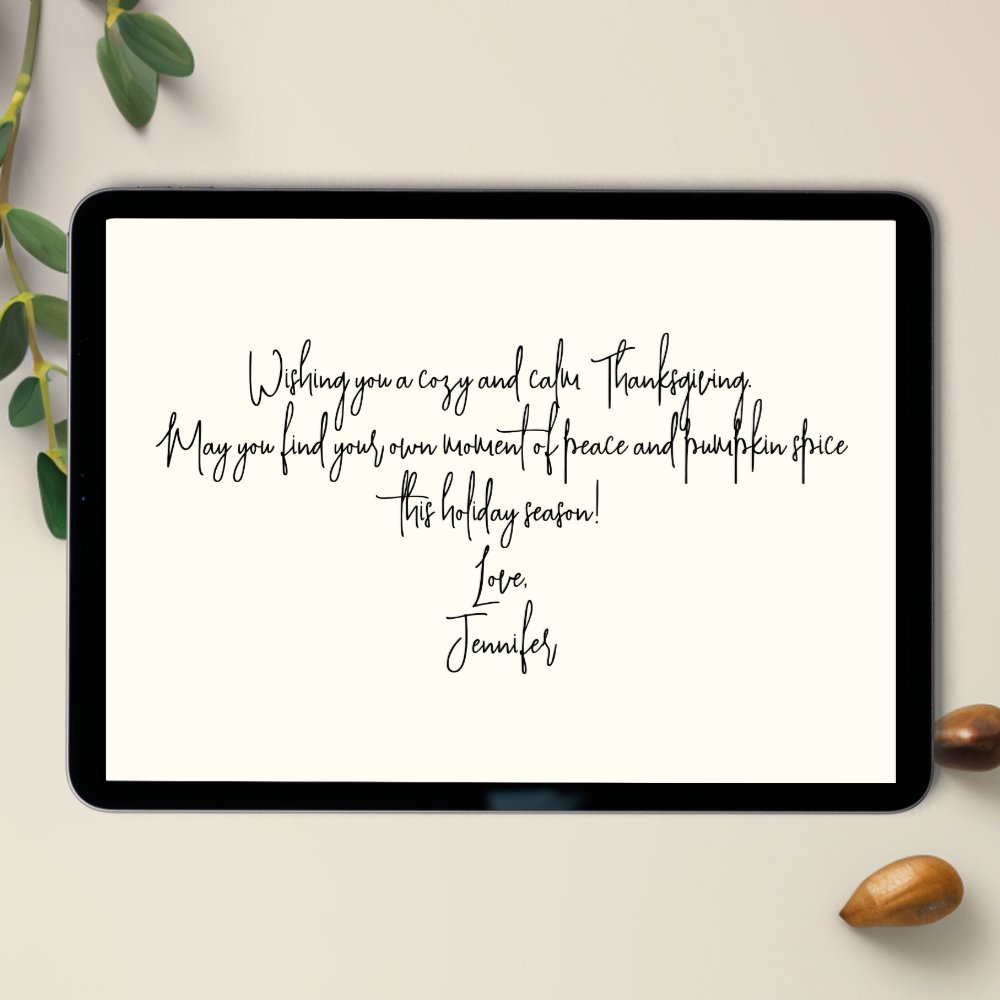 Wishing you a cozy and calm Thanksgiving.
May you find your own moment of peace and pumpkin spice
this holiday season!
Love,
Jennifer